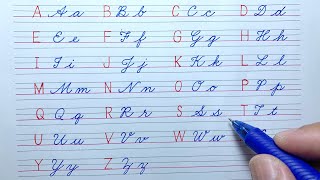 A A a B B b C C c D D d
E E e F F f G G g H H h
I I i J J j K K k L L l
M M m N N n O O o P P p
Q Q q R R r S S s T T t
U U u V V v W W w
Y Y y Z Z z